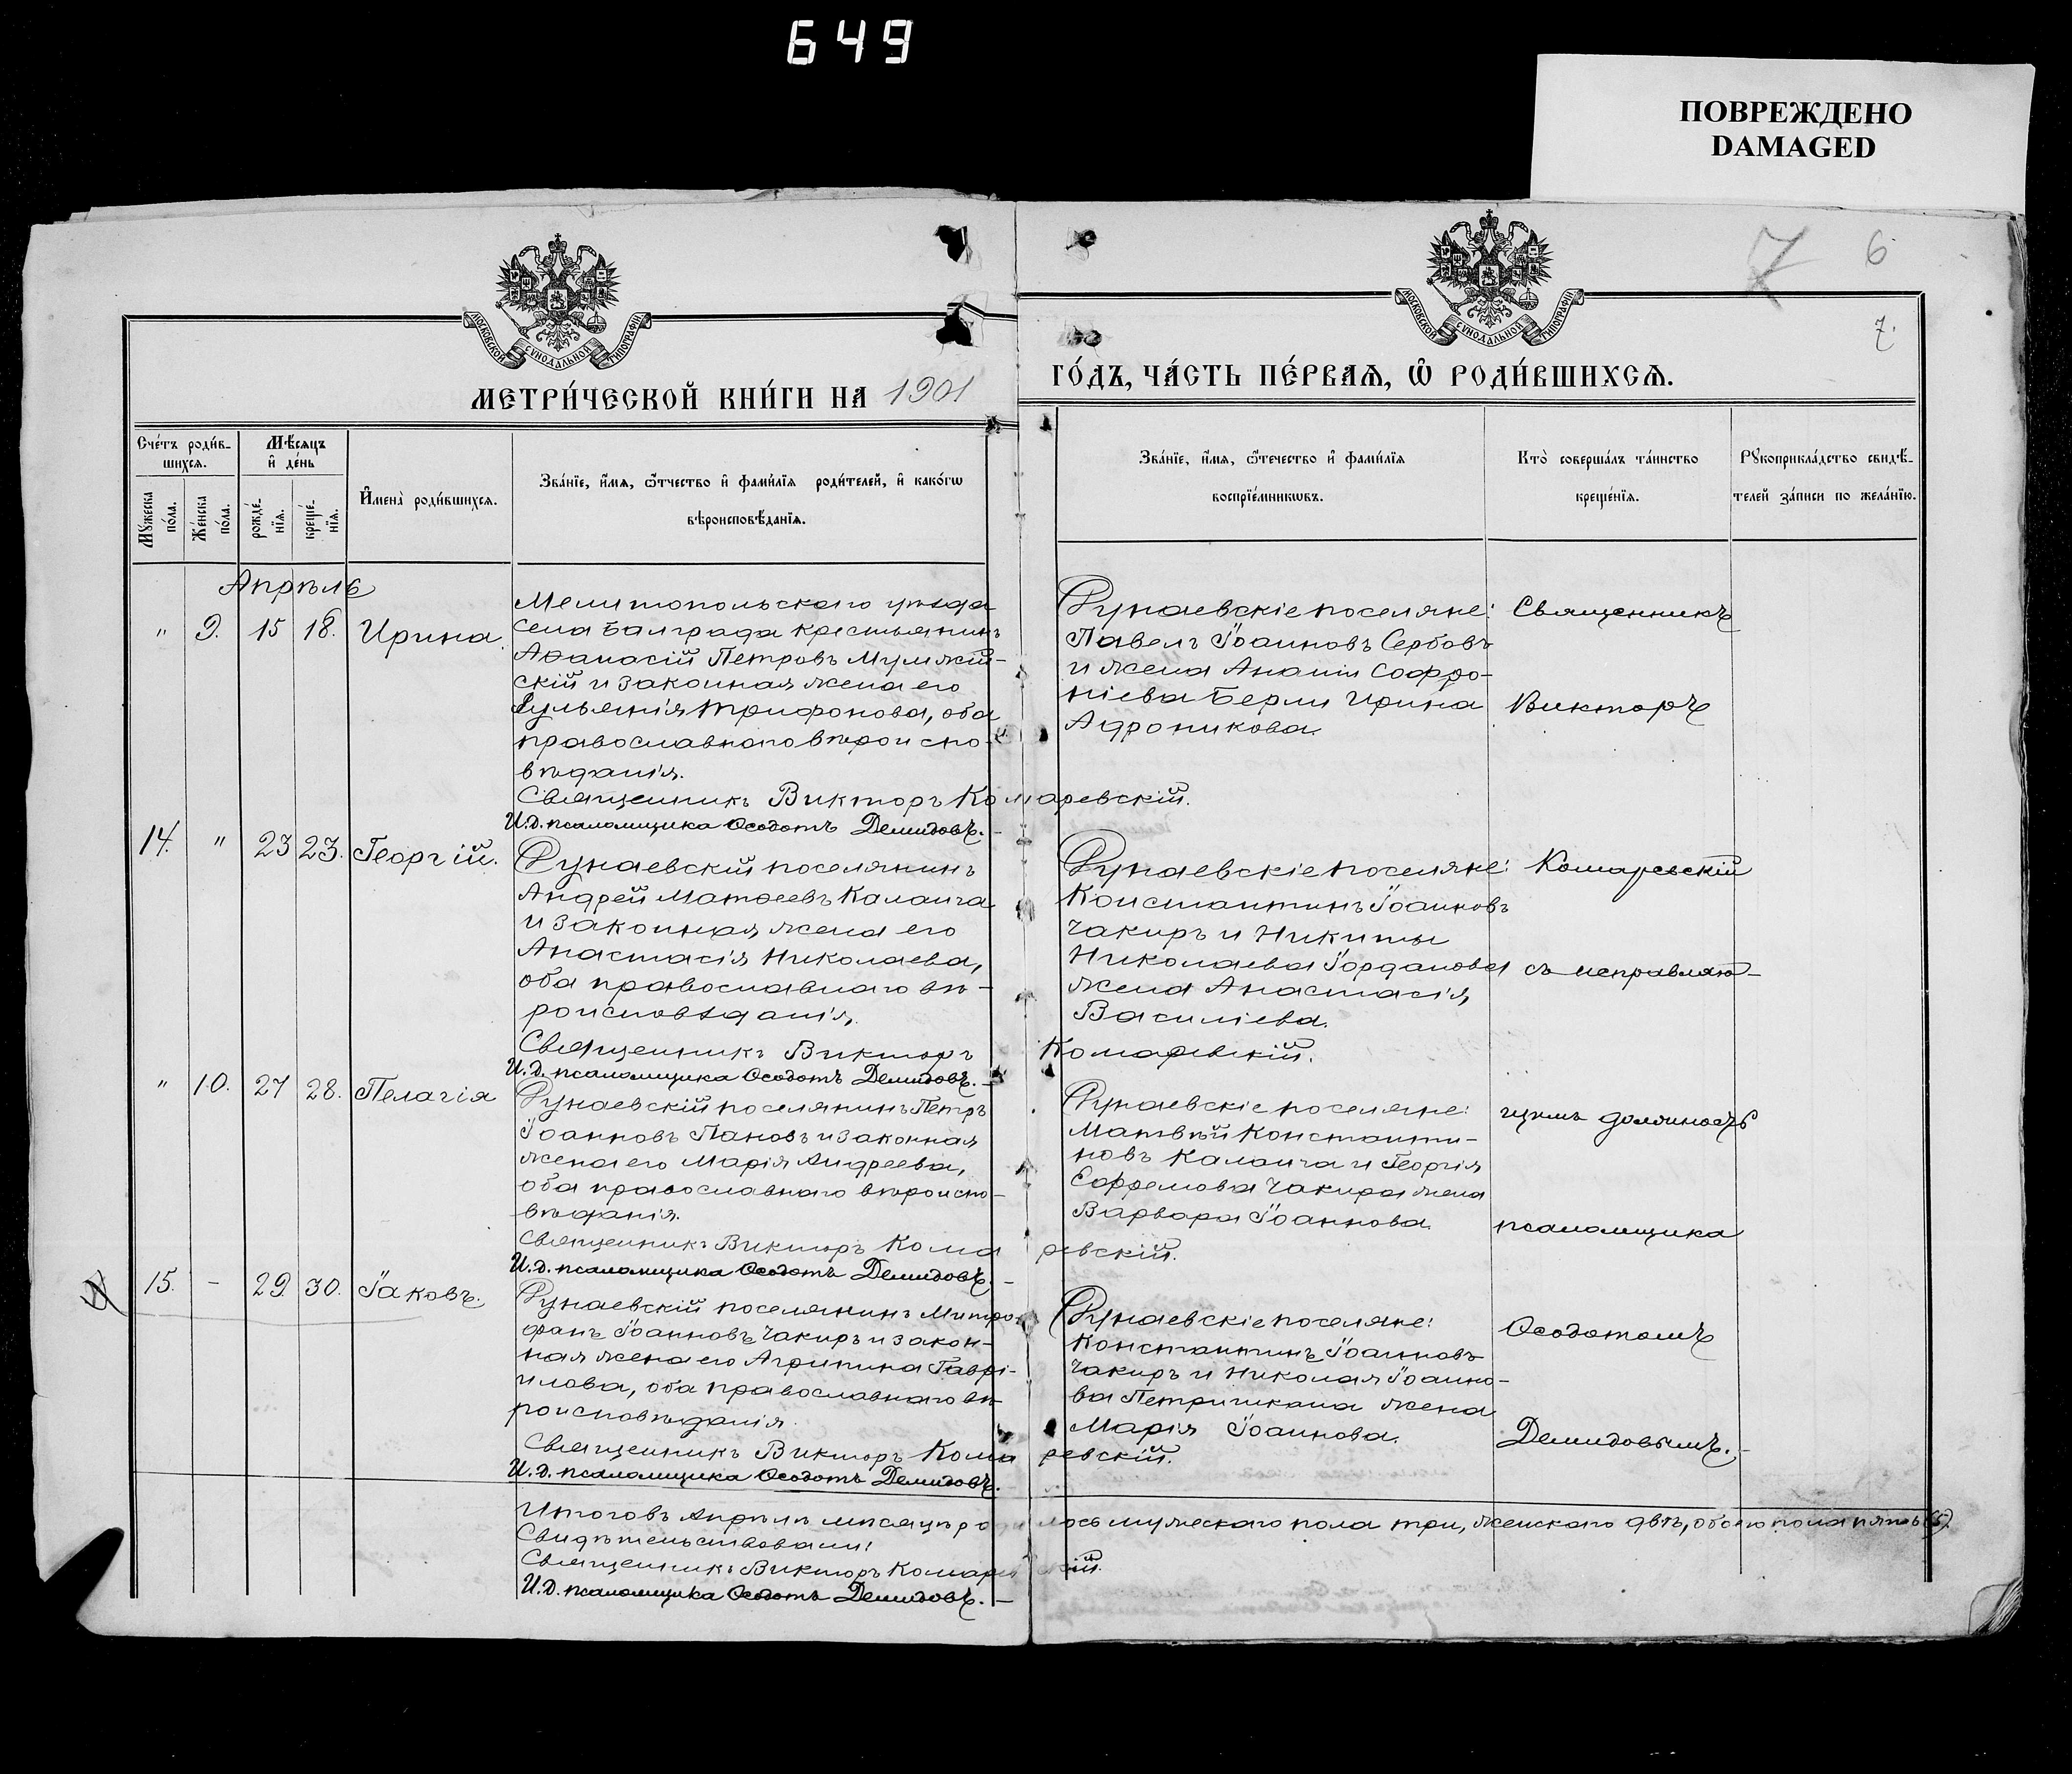 649
ПОВРЕЖДЕНО
DAMAGED
7
6
7.
МОСКОВСКОЙ СѴНОДАЛЬНОЙ ТИПОГРАФІИ
МОСКОВСКОЙ СѴНОДАЛЬНОЙ ТИПОГРАФІИ
МЕТРИ́ЧЕСКОЙ КНИ́ГИ НА 1901
ГО́ДЪ, ЧА́СТЬ ПЕ́РВАЯ, Ѡ РОДИ́ВШИХСЯ.
Сче́тъ роди́в-
шихся.
Мѣ́сяцъ
и҆ де́нь
Мꙋжеска по́ла.
Же́нска по́ла.
рожде́-нїя.
креще́-нїя.
И҆мена̀ роди́вшихся.
Зва́нїе, и҆́мя, ѻ҆́тчество и҆ фами́лїя роди́телей, и҆ како́гѡ
вѣроисповѣ́данїя.
Зва́нїе, и҆́мя, ѻ҆те́чество и҆ фами́лїя
воспрїе́мникѡвъ.
Кто̀ соверша́лъ та́инство
креще́нїя.
Рꙋкоприкла́дство свидѣ́-
телей за́писи по жела́нїю.
Апрѣль
" 9. 15 18. Ирина.
Мелитопольскаго уѣзда
села Балграда крестьянинъ
Аѳанасій Петровъ
скій и законная жена его
Іульянія Трифонова, оба
православнаго вѣроиспо-
вѣданія.
Священникъ Викторъ Комаревскій.
И.д. псаломщика Ѳеодотъ Демидовъ. –
поселяне:
Павелъ Іоанновъ Сербовъ
и жена Ананіи Софро-
ніева Берли Ирина
Адроникова.
Священникъ
Викторъ
14. " 23 23. Георгій.
поселянинъ
Андрей Матѳеевъ Калаича
и законная жена его
Анастасія Николаева,
оба православнаго вѣ-
роисповѣданія.
Священникъ Викторъ Комаревскій.
И.д. псаломщика Ѳеодотъ Демидовъ. –
поселяне:
Константинъ Іоанновъ
Чакиръ и Никиты
Николаева Іорданова
жена Анастасія
Василіева.
Комаревскій
съ исправляю-
" 10. 27 28. Пелагія
поселянинъ Петръ
Іоанновъ Пановъ и законная
жена его Марія Андреева,
оба православнаго вѣроиспо-
вѣданія.
Священникъ Викторъ Комаревскій.
И.д. псаломщика Ѳеодотъ Демидовъ. –
поселяне:
Матвѣй Константи-
новъ Калаича и Георгія
Ефремова Чакира жена
Варвара Іоаннова.
щимъ должность
псаломщика
15. - 29. 30. Іаковъ.
поселянинъ Митро-
фанъ Іоанновъ Чакиръ и закон-
ная жена его Агрипина Гаврі-
илова, оба православнаго вѣ-
роисповѣданія.
Священникъ Викторъ Комаревскій.
И.д. псаломщика Ѳеодотъ Демидовъ.
поселяне:
Константинъ Іоанновъ
Чакиръ и Николая Іоанно-
ва жена
Марія Іоаннова.
Ѳеодотомъ
Демидовымъ. –
Итого въ Апрѣлѣ мѣсяцѣ родилось мужескаго пола три, женскаго двѣ, обоего пола пять (5).
Свидѣтельствовали:
Священникъ Викторъ Комаревскій.
И.д. псаломщика Ѳеодотъ Демидовъ. –